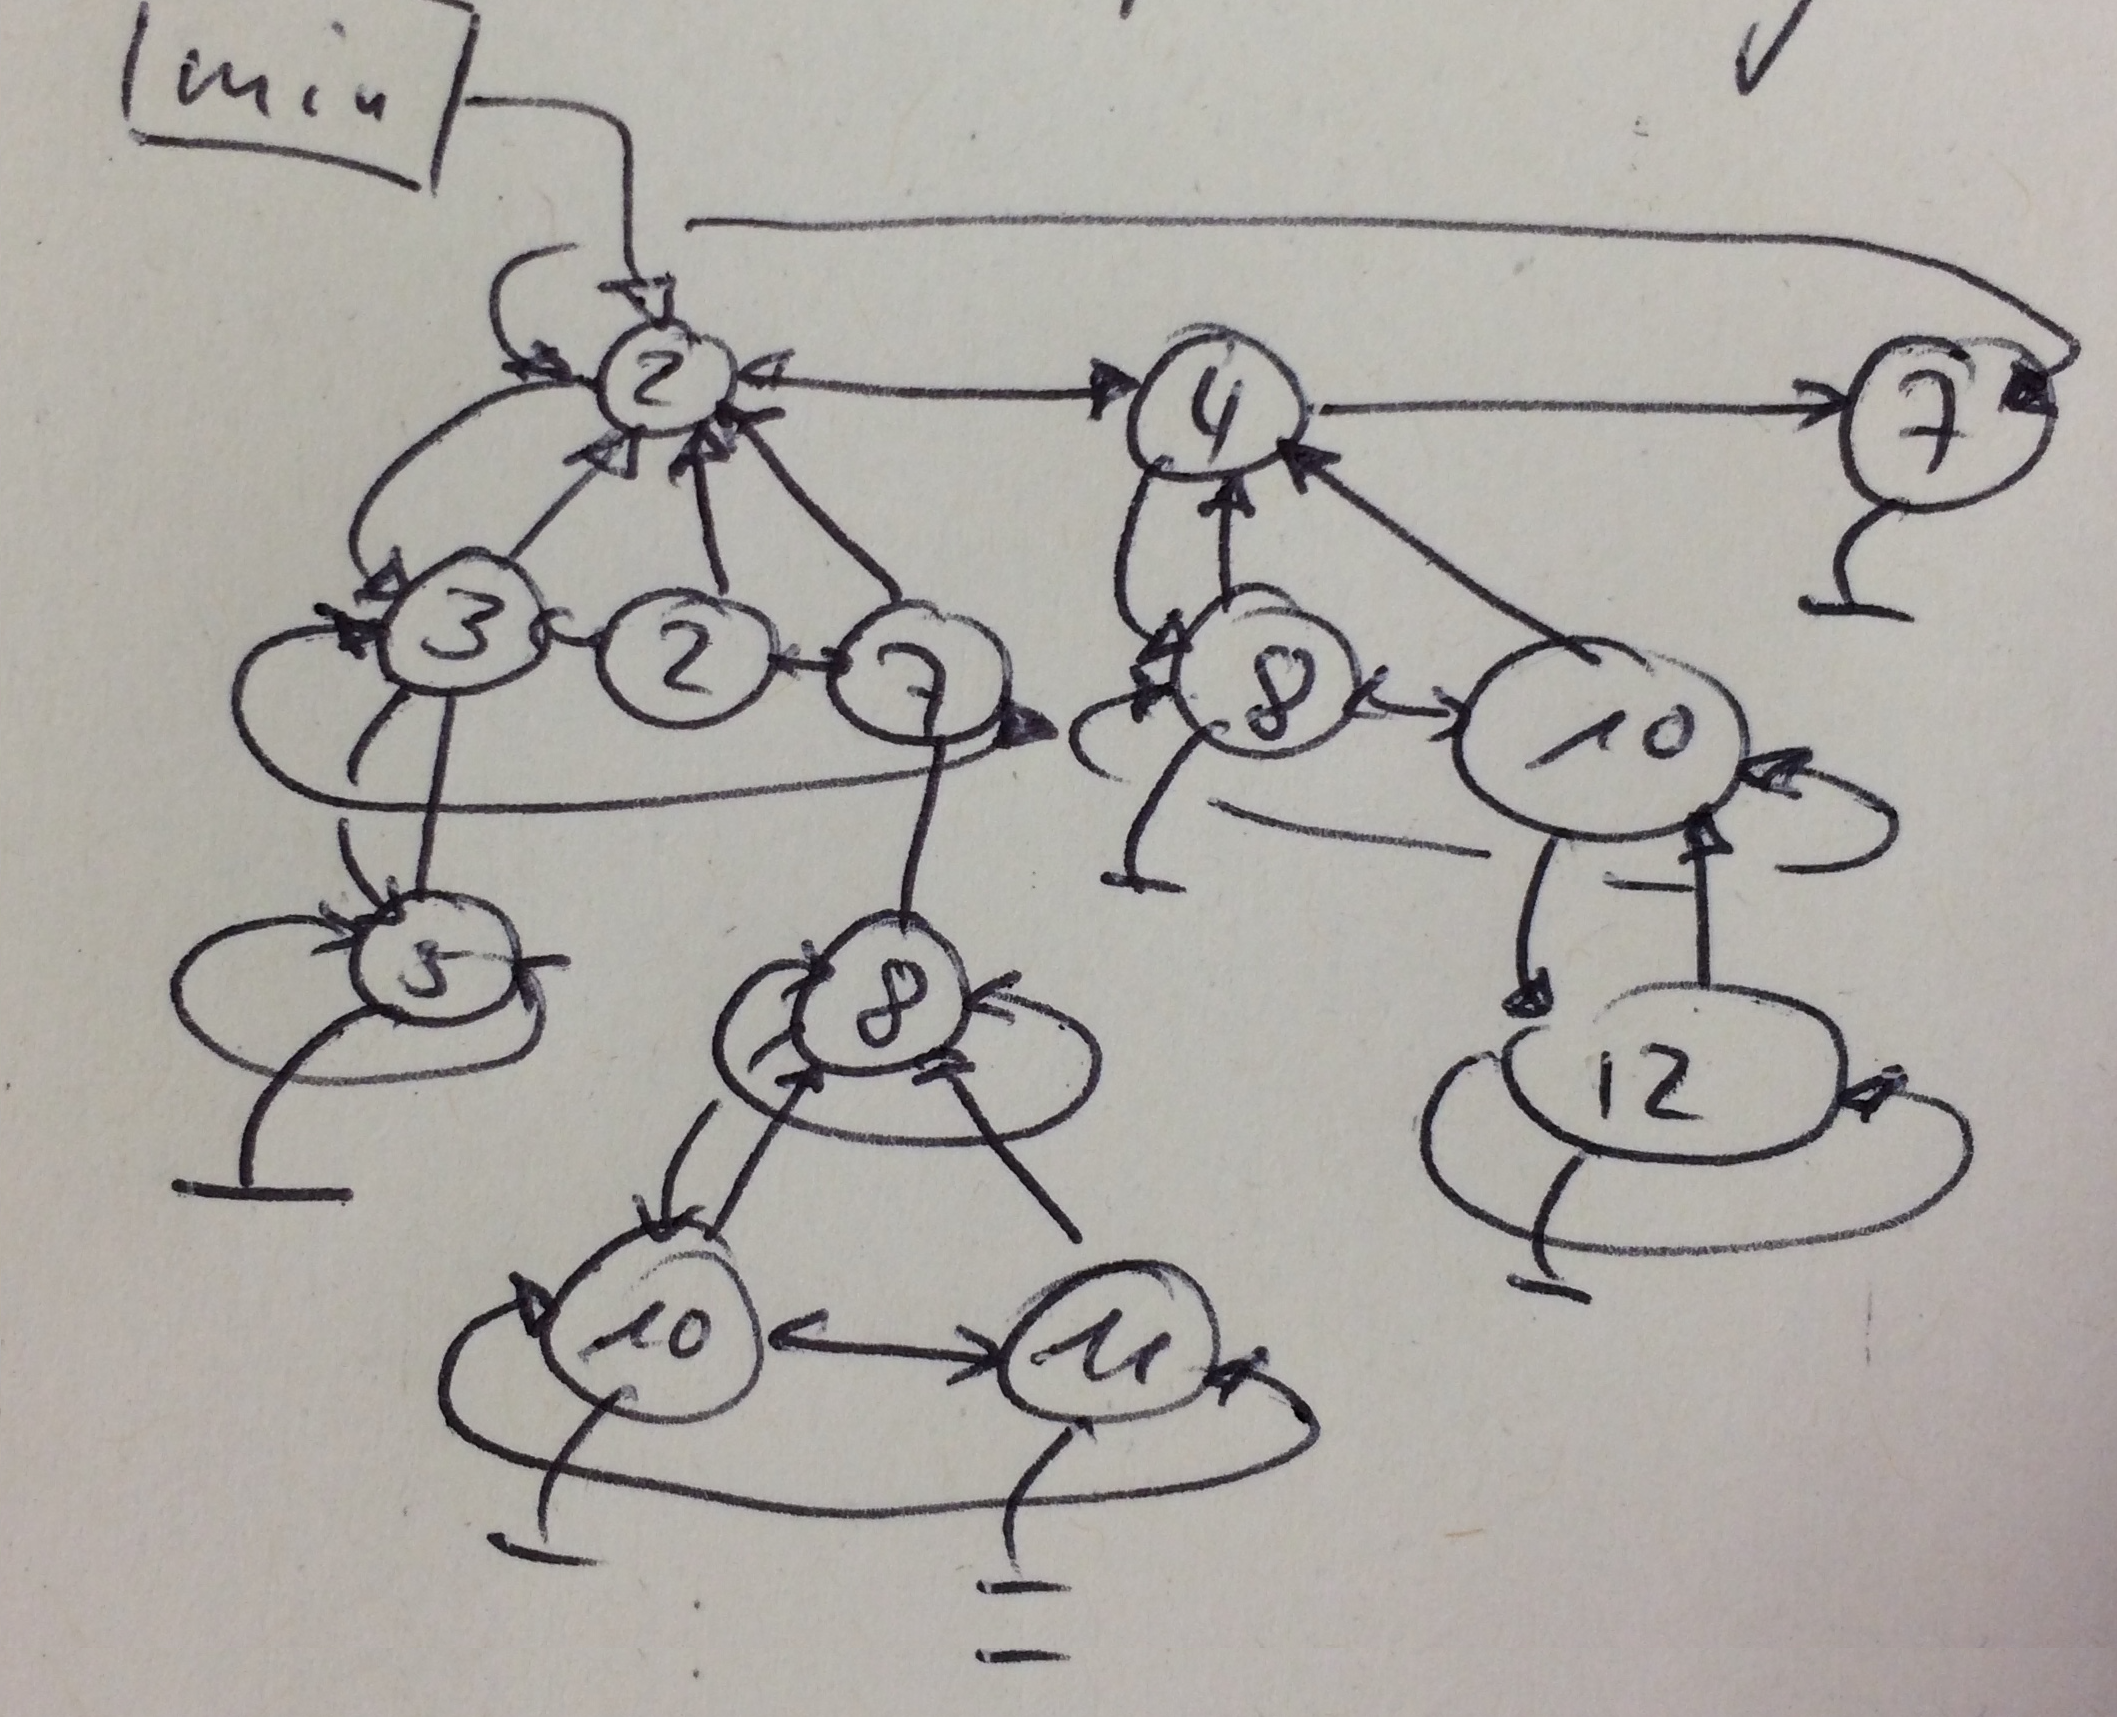 min
2 4 7
3 2 7 8 10
5 8 12
10 11